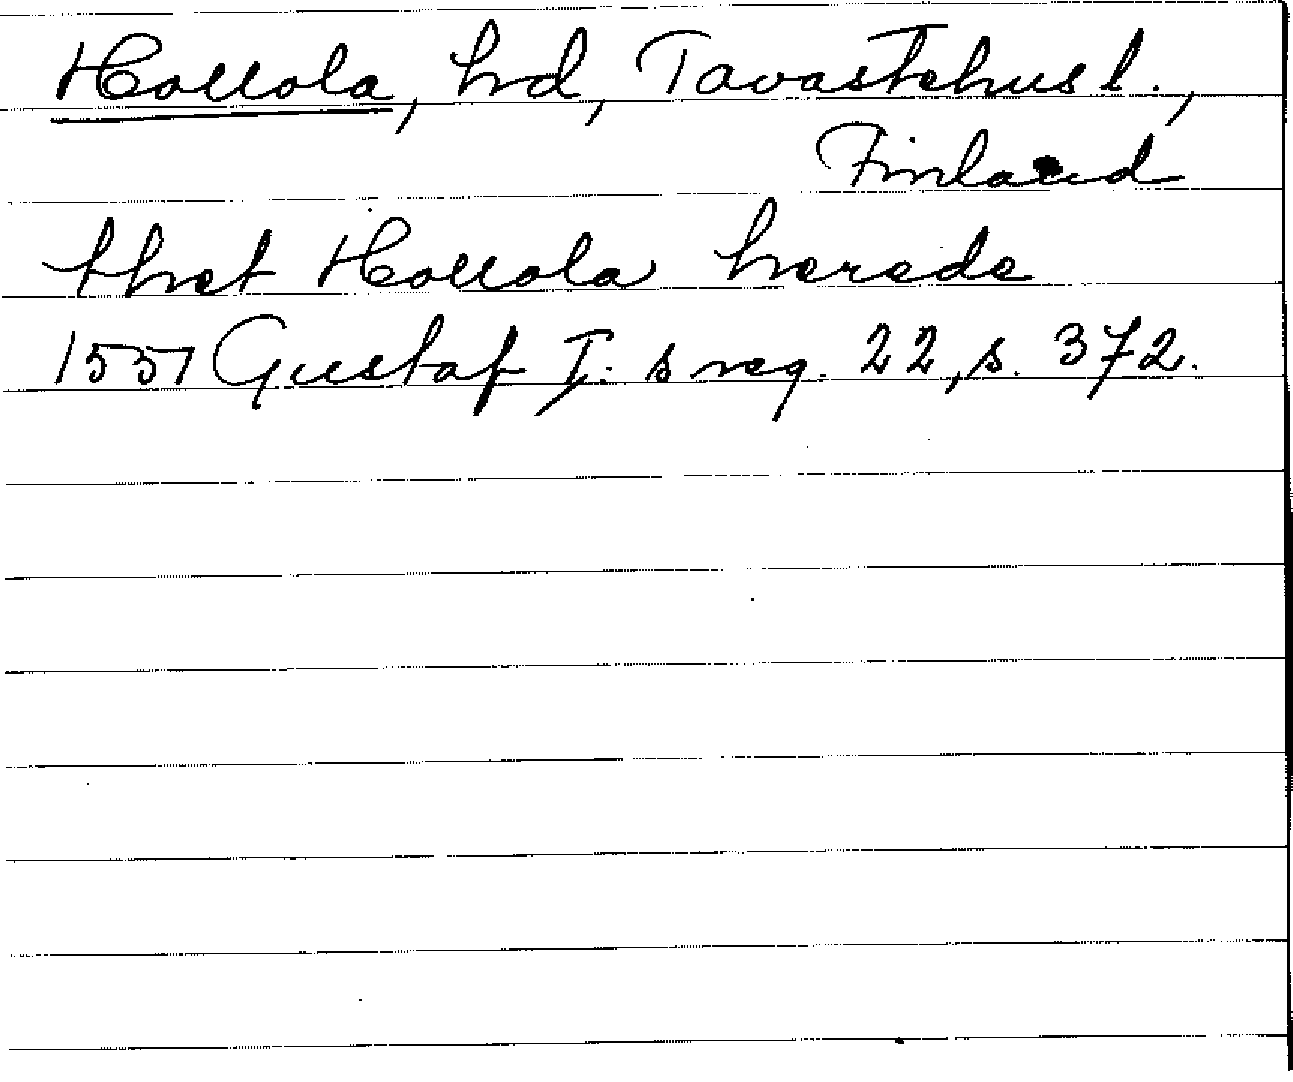 Hollola, hd, Tavastehus l.,
Finland
thet Hollola herede
1551 Gustaf I:s reg. 22, s. 372.